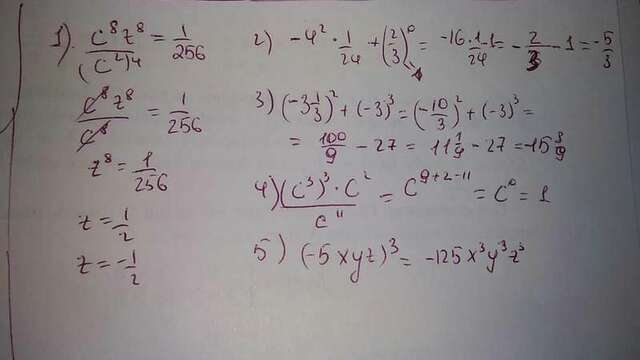 1). c⁸z⁸/(c²)⁴ = 1/256
c⁸z⁸/c⁸ = 1/256
z⁸ = 1/256
z = 1/2
z = -1/2
2) -4² · 1/24 + (2/3)⁰ = -16·1/24 - 1 = -2/3 - 1 = -5/3
3) (-3 1/3)² + (-3)³ = (-10/3)² + (-3)³ =
= 100/9 - 27 = 11 1/9 - 27 = -15 8/9
4) (c³)³ · c²/c¹¹ = c⁹⁺²⁻¹¹ = c⁰ = 1
5) (-5xyz)³ = -125x³y³z³